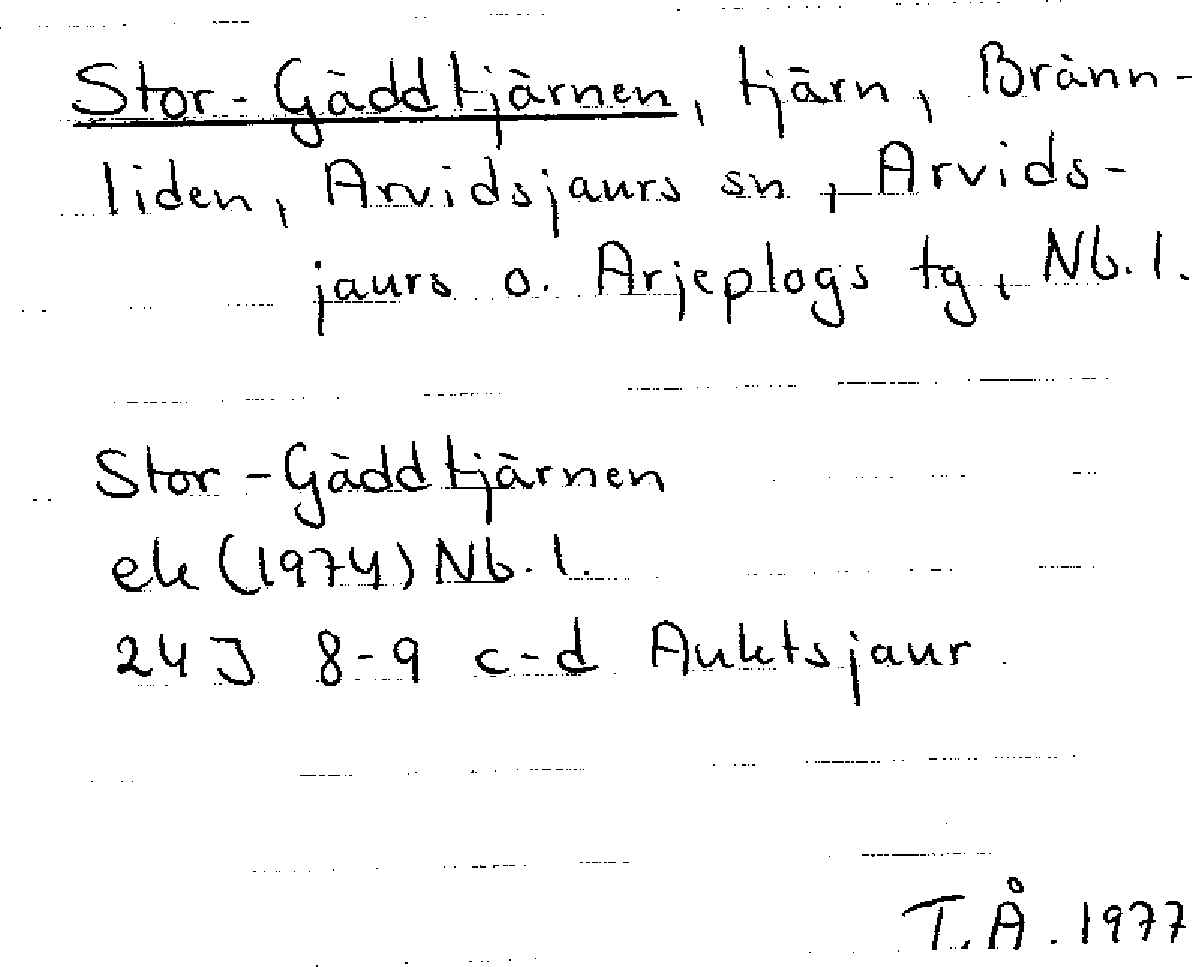 Stor-Gäddtjärnen, tjärn, Bränn-
liden, Arvidsjaurs sn, Arvids-
jaurs o. Arjeplogs tg, Nb. l.
Stor-Gäddtjärnen
ek (1974) Nb. l.
24 J 8-9 c-d Auktsjaur
T. Å. 1977